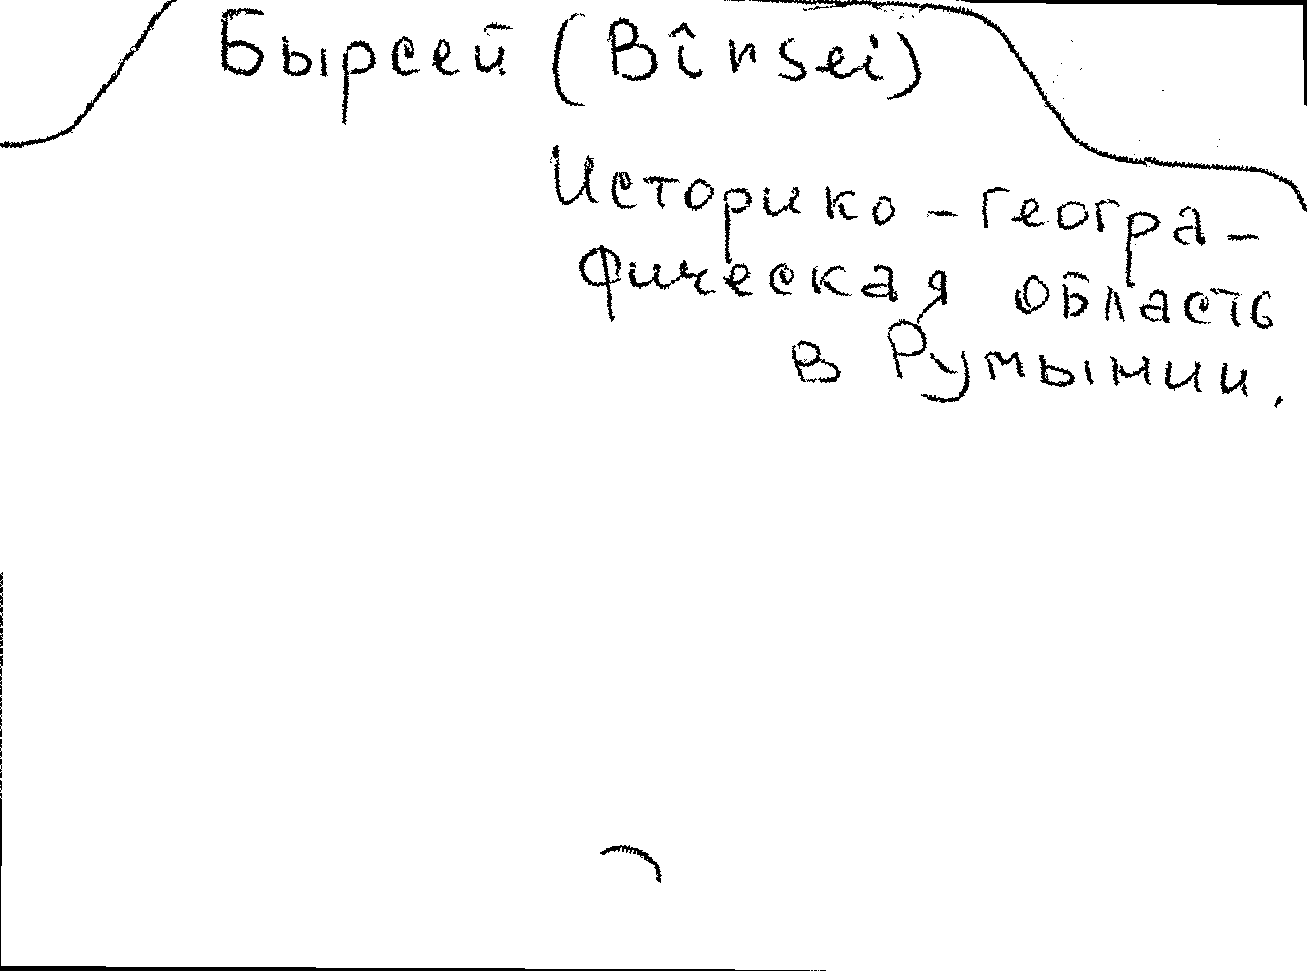 Бырсей (Bîrsei)
Историко-геогра-
фическая область
в Румынии.